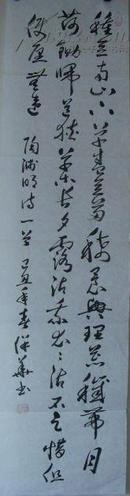 種豆南山下草盛豆苗稀晨興理荒穢帶月
荷鋤歸道狹草木長夕露沾我衣〻沾不足惜但
使願無違 陶淵明詩一首 己丑年春 書